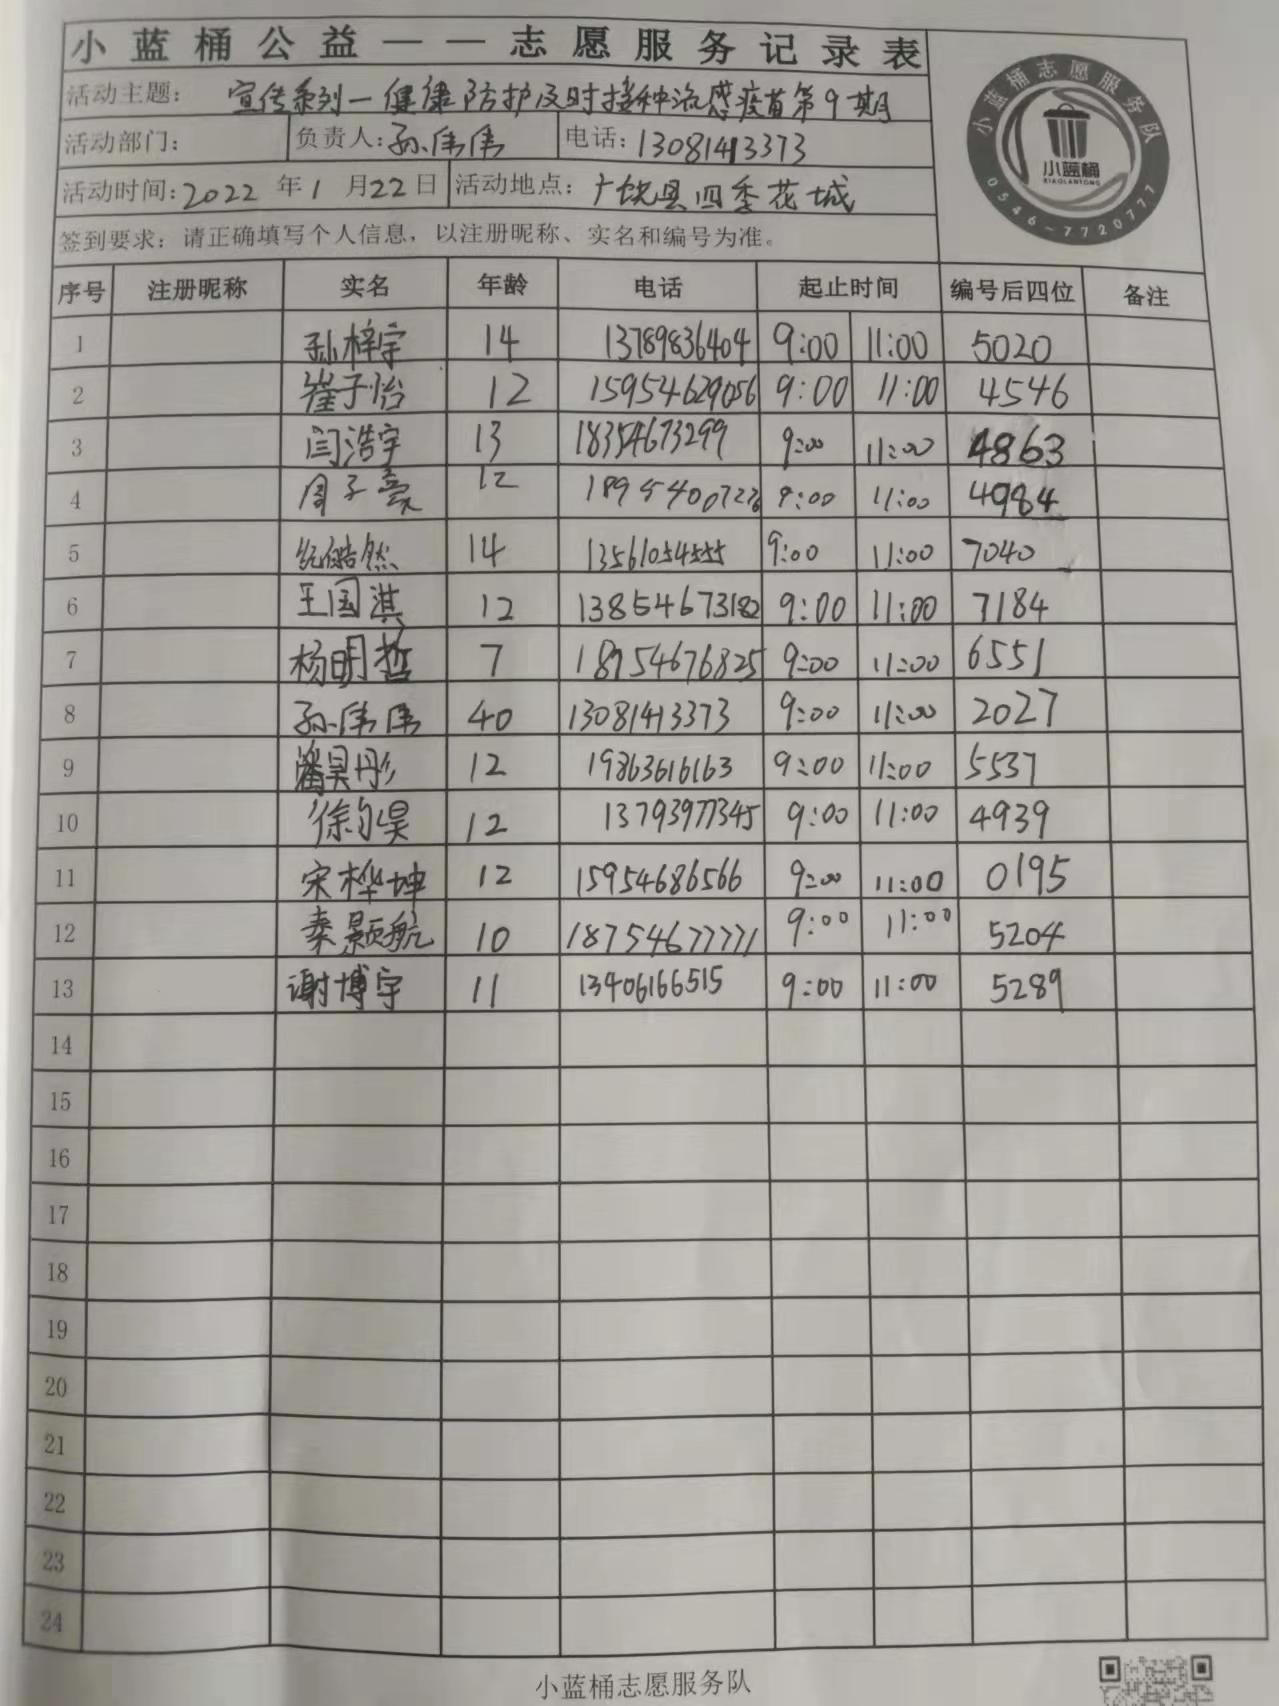 小蓝桶公益——志愿服务记录表
活动主题： 宣传系列一健康防护及时接种流感疫苗第9期
活动部门： 负责人：孙伟伟 电话：13081413373
活动时间：2022 年 1 月 22 日 活动地点：广饶县四季花城
签到要求：请正确填写个人信息，以注册昵称、实名和编号为准。
小蓝桶志愿服务队
小蓝桶
XIAOLANTONG
0546-7720777
序号 注册昵称 实名 年龄 电话 起止时间 编号后四位 备注
1 孙梓宇 14 13789836404 9:00 11:00 5020
2 崔子怡 12 15954629056 9:00 11:00 4546
3 闫浩宇 13 18354673299 9:00 11:00 4863
4 周子豪 12 18954007226 9:00 11:00 4984
5 纪皓然 14 13561054555 9:00 11:00 7040
6 王国淇 12 13854673182 9:00 11:00 7184
7 杨明哲 7 18954676825 9:00 11:00 6551
8 孙伟伟 40 13081413373 9:00 11:00 2027
9 潘昊彤 12 19863616163 9:00 11:00 5537
10 徐昊 12 13793977345 9:00 11:00 4939
11 宋桦坤 12 15954686566 9:00 11:00 0195
12 秦颢航 10 18754677771 9:00 11:00 5204
13 谢博宇 11 13406166515 9:00 11:00 5289
14
15
16
17
18
19
20
21
22
23
24
小蓝桶志愿服务队